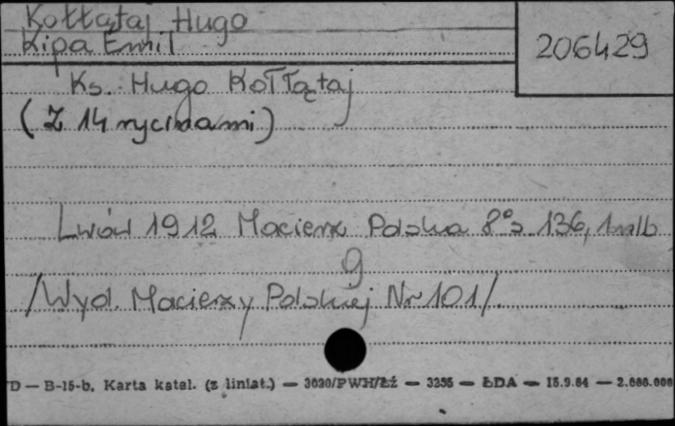 Kołłątaj Hugo
Kipa Emil
206429
Ks. Hugo Kołłątaj
(Z 14 rycinami)
Lwów 1912 Macierz Polska 8° s. 136, 1 nlb
9
/Wyd. Macierzy Polskiej Nr 101/.
D — B-15-b. Karta katal. (z liniat.) — 3020/PWH/Łź — 3255 — ŁDA — 15.9.64 — 2.000.000